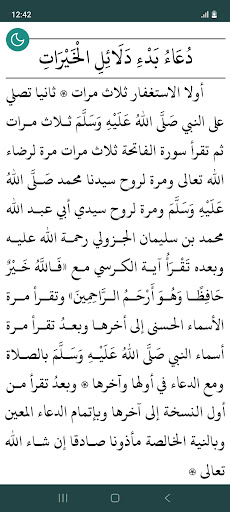 12:42
دُعَاءُ بَدْءِ دَلَائِلِ الْخَيْرَاتِ
أولا الاستغفار ثلاث مرات ۞ ثانيا تصلي
على النبي صَلَّى اللهُ عَلَيْهِ وَسَلَّمَ ثلاث مرات
ثم تقرأ سورة الفاتحة ثلاث مرات مرة لرضاء
الله تعالى ومرة لروح سيدنا محمد صَلَّى اللهُ
عَلَيْهِ وَسَلَّمَ ومرة لروح سيدي أبي عبد الله
محمد بن سليمان الجزولي رحمة الله عليه
وبعده تَقْرَأُ آية الكرسي مع «فَاللهُ خَيْرٌ
حَافِظًا وَهُوَ أَرْحَمُ الرَّاحِمِينَ» وتقرأ مرة
الأسماء الحسنى إلى أخرها وبعدُ تقرأ مرة
أسماء النبي صَلَّى اللهُ عَلَيْهِ وَسَلَّمَ بالصلاة
ومع الدعاء في أولها وآخرها ۞ وبعدُ تقرأ من
أول النسخة إلى آخرها وبإتمام الدعاء المعين
وبالنية الخالصة مأذونا صادقا إن شاء الله
تعالى ۞